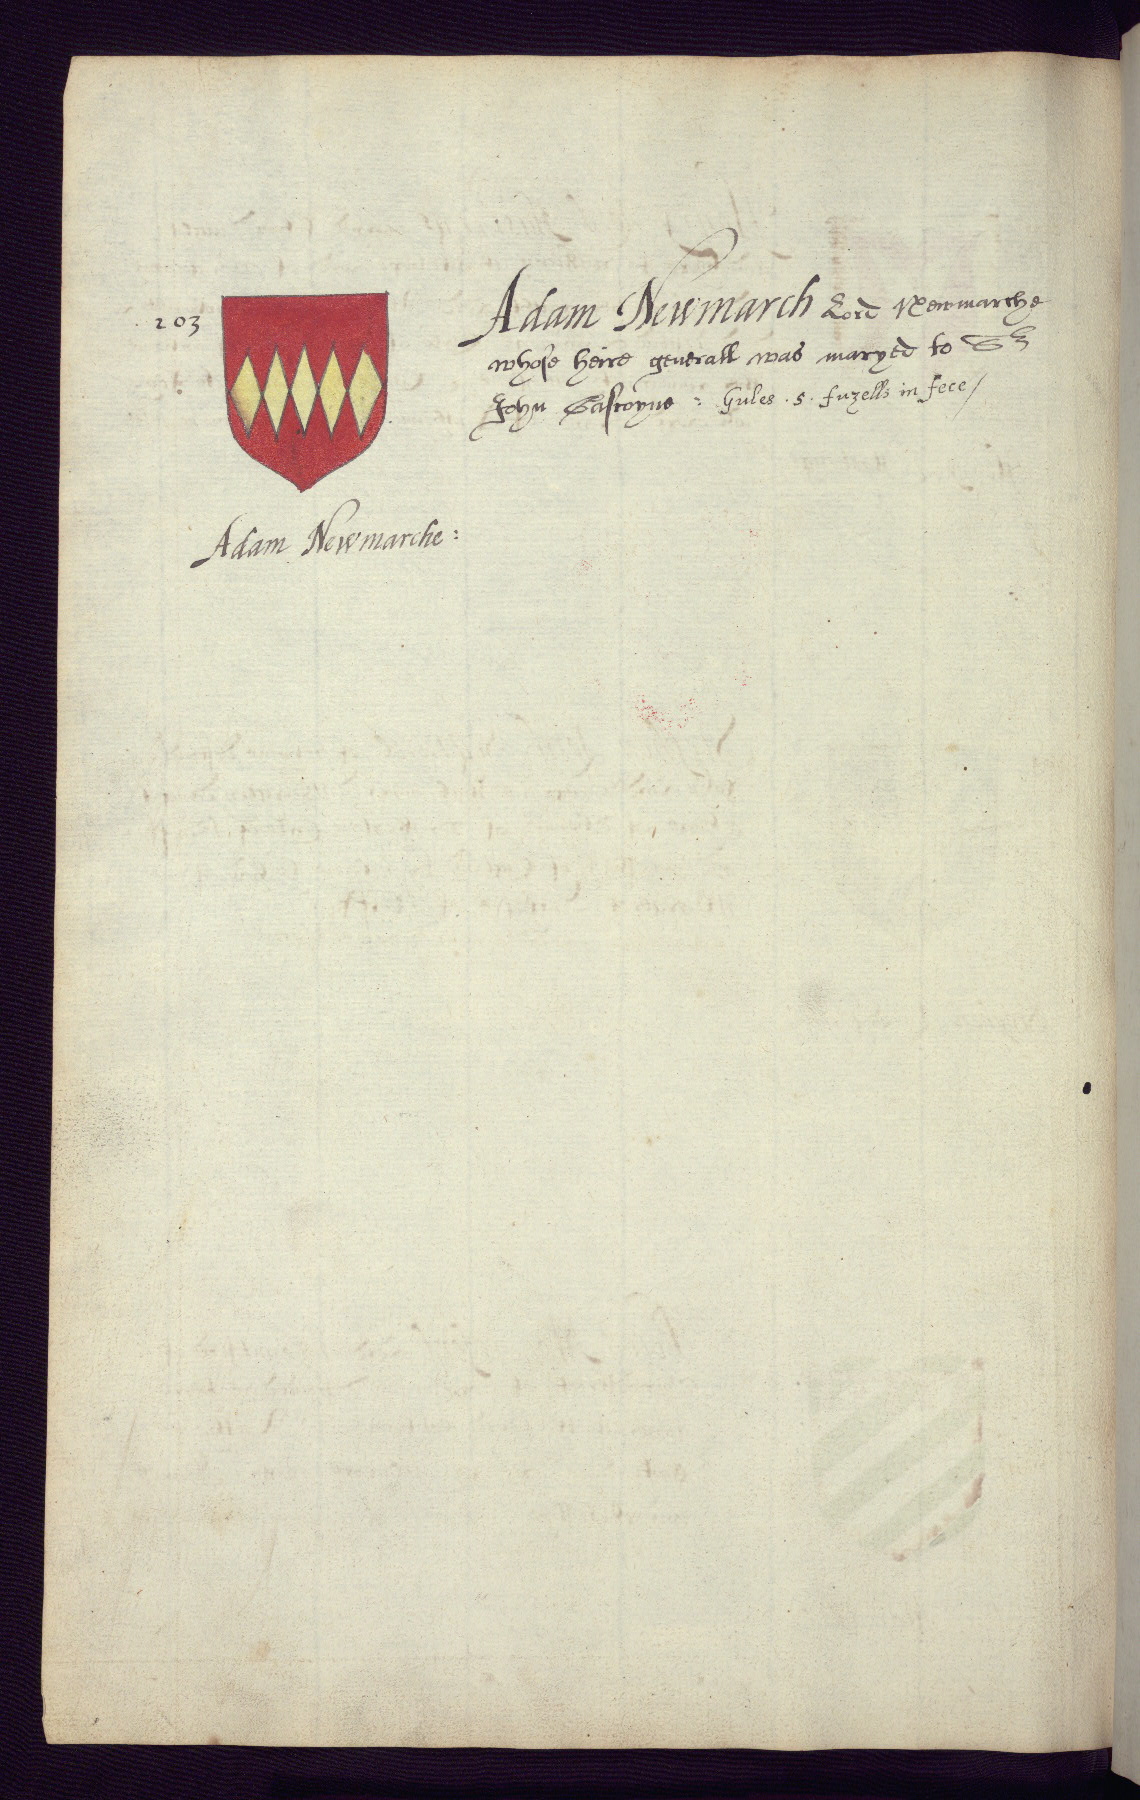 203
Adam Newmarch Lord Newmarche
whose heire generall was maryed to Sr
John Gascoyne : Gules . 5 . fuzells in fece /
Adam Newmarche :